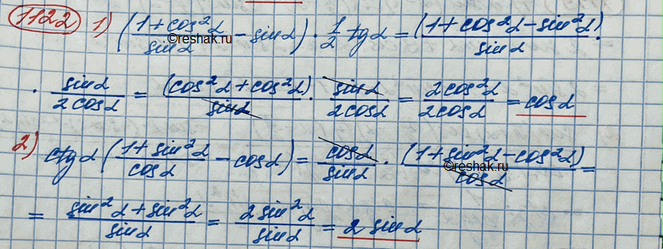 1122 1) ((1+cos²α)/sinα − sinα) · 1/2 tgα = (1+cos²α−sin²α)/sinα ·
· sinα/(2cosα) = (cos²α+cos²α)/sinα · sinα/(2cosα) = 2cos²α/(2cosα) = cosα
2) ctgα ((1+sin²α)/cosα − cosα) = cosα/sinα · (1+sin²α−cos²α)/cosα =
= (sin²α+sin²α)/sinα = 2sin²α/sinα = 2 sinα
©reshak.ru
©reshak.ru